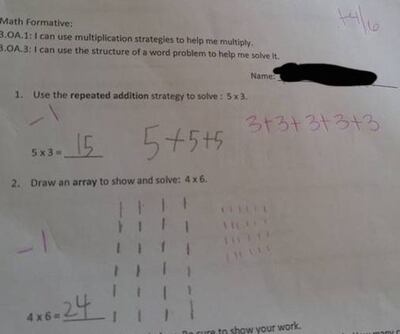 Math Formative:
3.OA.1: I can use multiplication strategies to help me multiply.
3.OA.3: I can use the structure of a word problem to help me solve it.
Name:
1. Use the repeated addition strategy to solve : 5 x 3.
-1
5 x 3 = 15 5+5+5 3+3+3+3+3
2. Draw an array to show and solve: 4 x 6.
-1
4 x 6 = 24
to show your work.